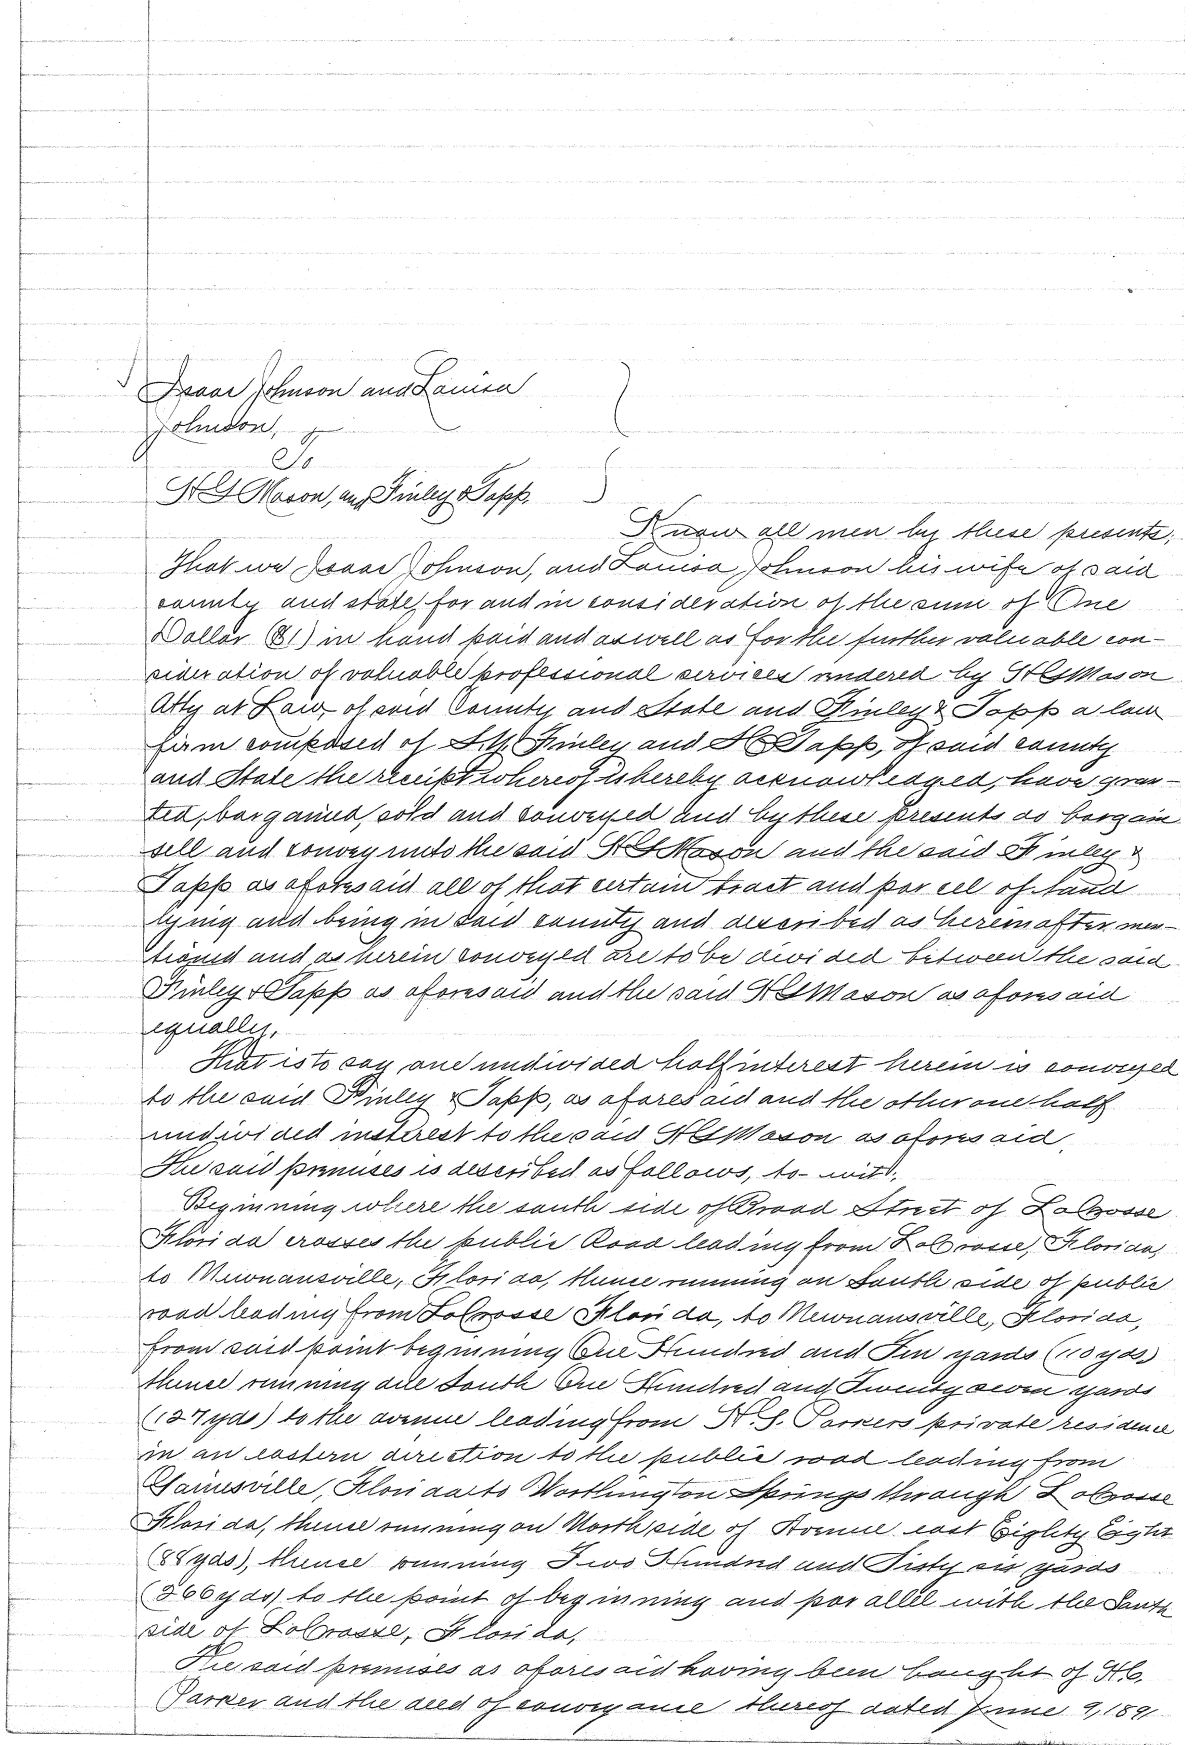 Isaac Johnson and Louisa
Johnson,
To
H G Mason, and Finley & Tapp.
Know all men by these presents,
That we Isaac Johnson, and Louisa Johnson his wife of said
county and state, for and in consideration of the sum of One
Dollar ($1) in hand paid and as well as for the further valuable con-
sideration of valuable professional services rendered by H G Mason
Atty at Law, of said County and State and Finley & Tapp a law
firm composed of S.Y. Finley and Tapp, of said county
and State the receipt whereof is hereby acknowledged, have gran-
ted, bargained, sold and conveyed and by these presents do bargain
sell and convey unto the said H G Mason and the said Finley &
Tapp as aforesaid all of that certain tract and parcel of land
lying and being in said county and described as hereinafter men-
tioned and as herein conveyed are to be divided between the said
Finley & Tapp as aforesaid and the said H G Mason as aforesaid
equally.
That is to say one undivided half interest herein is conveyed
to the said Finley & Tapp, as aforesaid and the other one half
undivided insterest to the said H G Mason as aforesaid.
The said premises is described as follows, to-wit:
Beginning where the south side of Broad Street of LaCrosse
Florida crosses the public Road leading from LaCrosse, Florida,
to Mewnansville, Florida, thence running on South side of public
road leading from LaCrosse Florida, to Newnansville, Florida,
from said point beginning One Hundred and Ten yards (110 yds)
thence running due South One Hundred and Twenty seven yards
(127 yds) to the avenue leading from H. S. Parkers private residence
in an eastern direction to the public road leading from
Gainesville, Florida to Worthington Springs through LaCrosse
Florida, thence running on North side of Avenue east Eighty Eight
(88 yds), thence running Two Hundred and Sixty six yards
(266 yds) to the point of beginning and parallel with the South
side of LaCrosse, Florida,
The said premises as aforesaid having been bought of H.C.
Parker and the deed of conveyance thereof dated June 9, 189